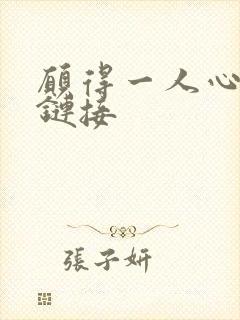 願得一人心
鏈接
張子妍